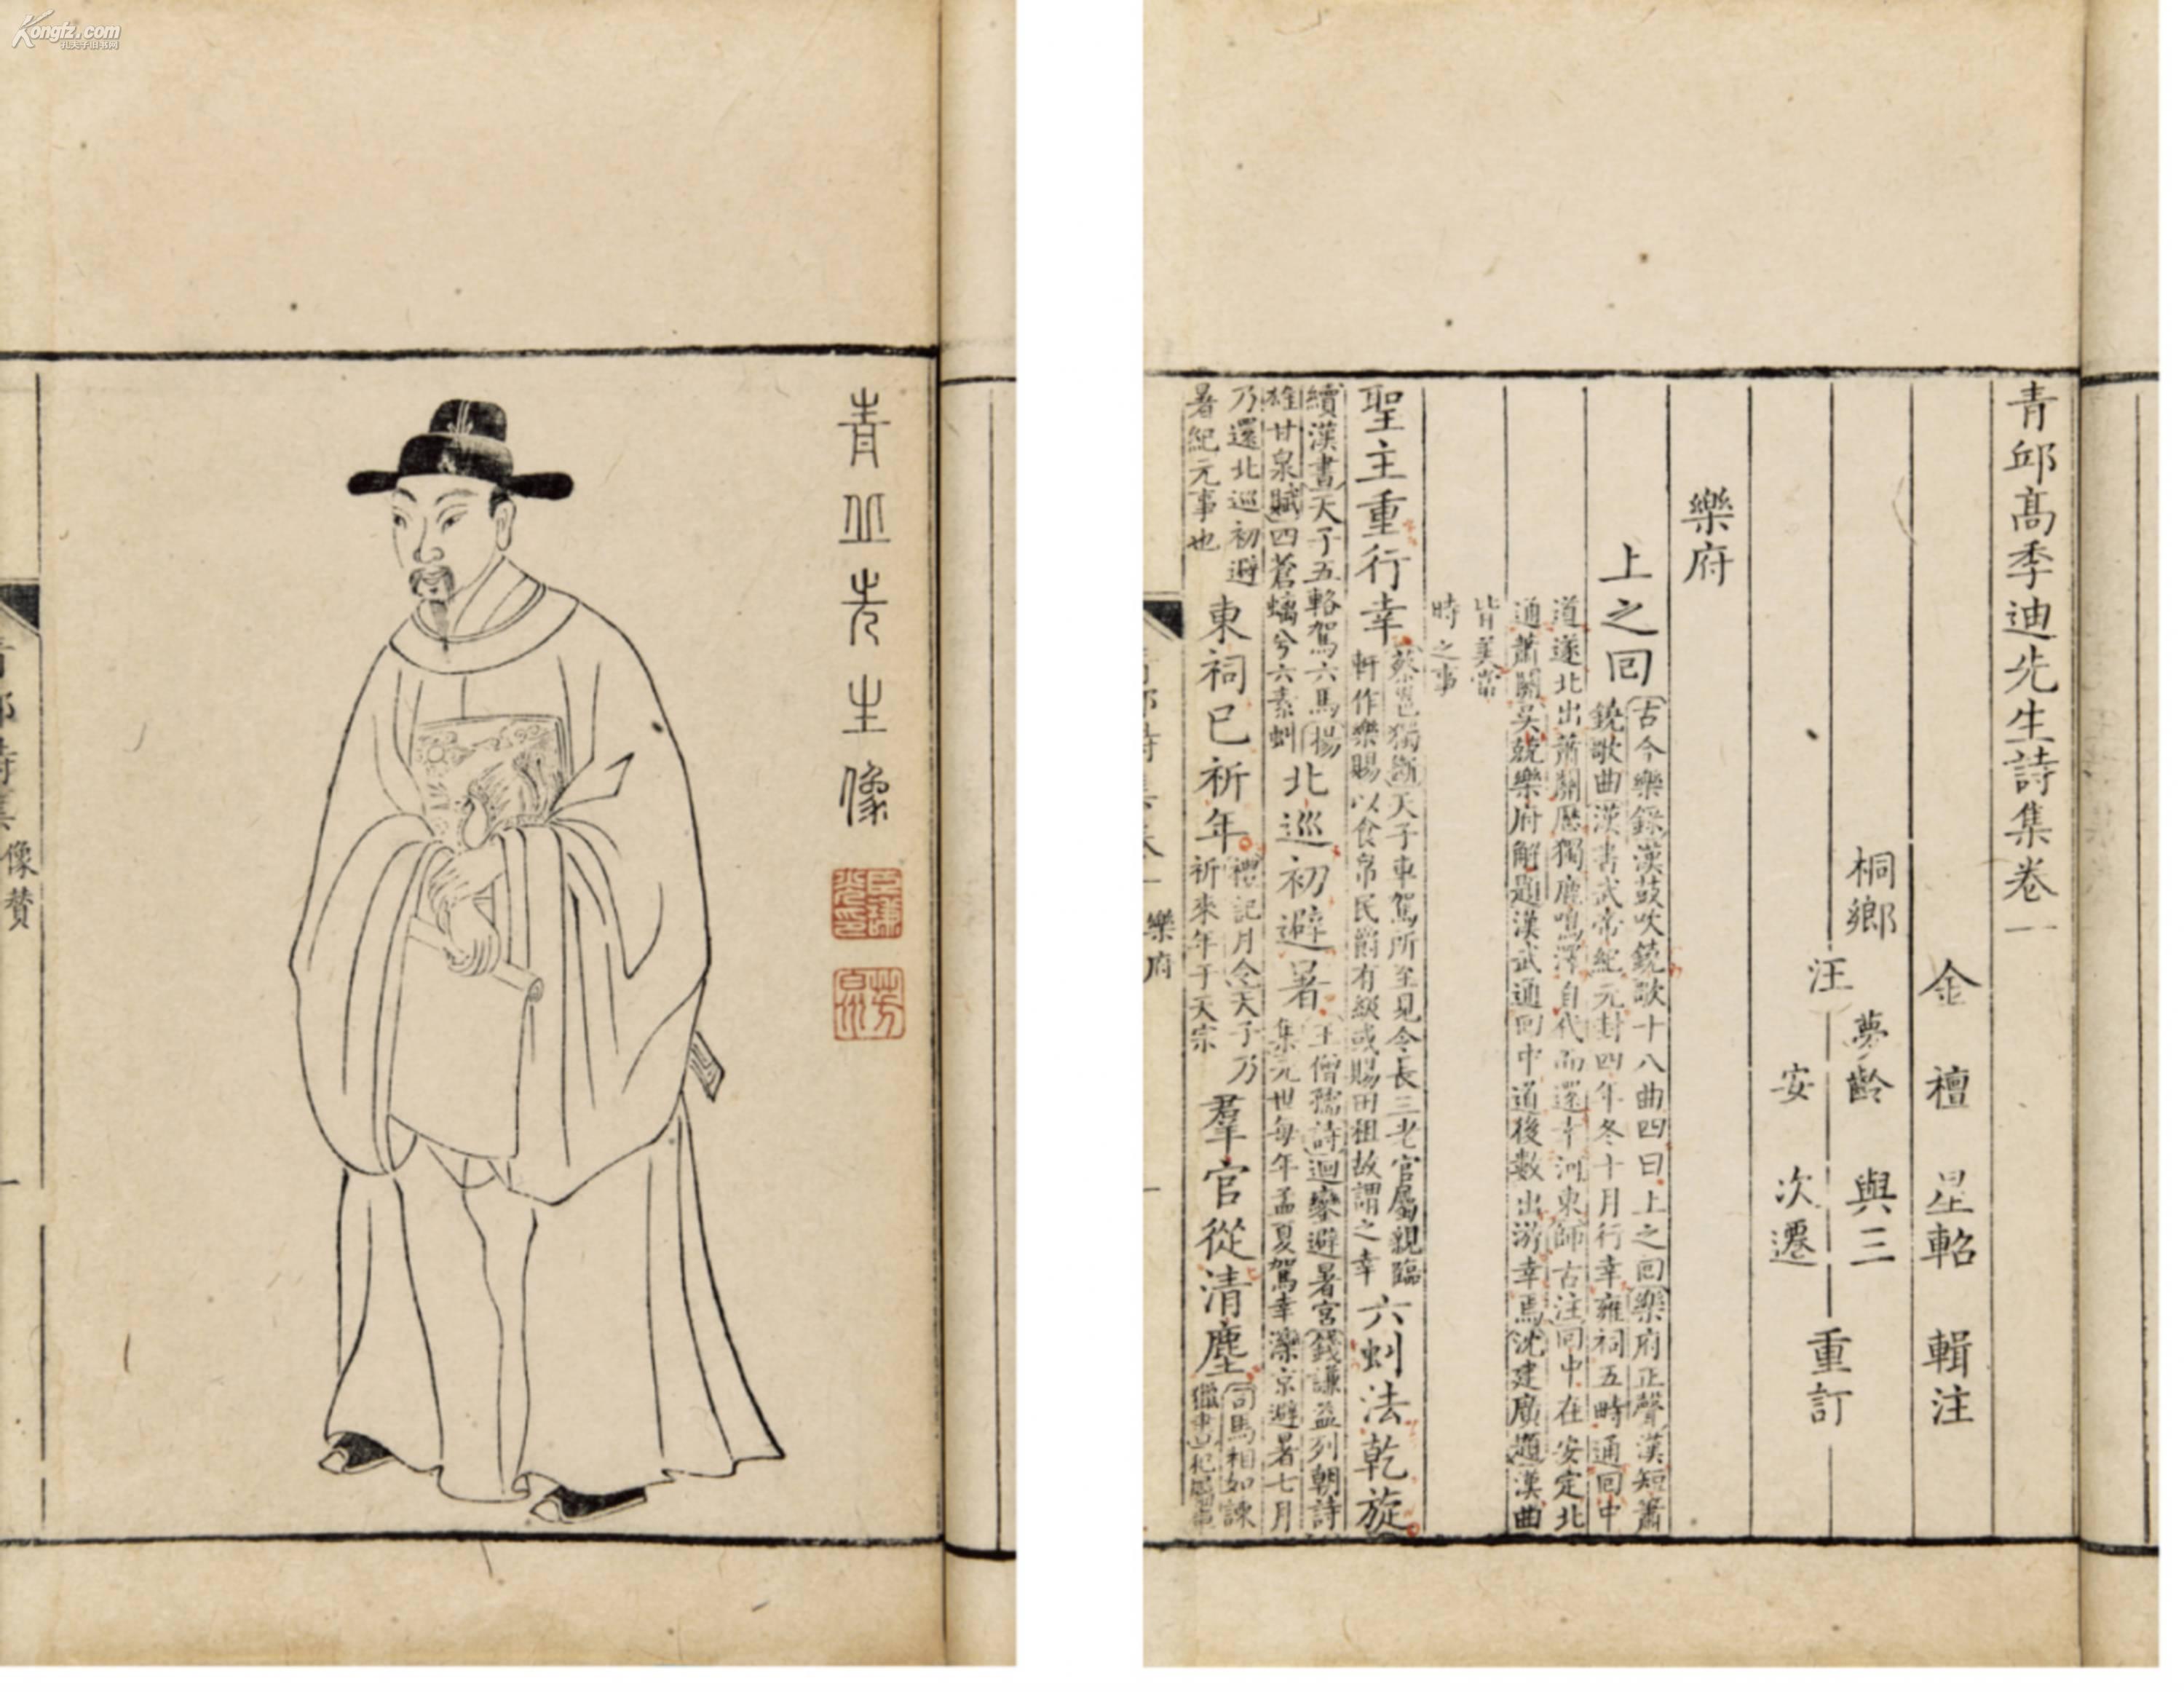 Kongfz.com
孔夫子旧书网
青丘先生像
像贊
一
青邱高季迪先生詩集卷一
金檀星軺輯注
桐鄉
汪
夢齡與三
安次遷
重訂
樂府
上之回
古今樂錄漢鼓吹鐃歌十八曲四曰上之回樂府正聲漢短簫
鐃歌曲漢書武帝紀元封四年冬十月行幸雍祠五畤通回中
道遂北出蕭關歷獨鹿鳴澤自代而還幸河東師古注回中在安定北
通蕭關吳兢樂府解題漢武通回中道後數出游幸焉沈建廣題漢曲
皆美當
時之事
聖主重行幸
蔡邕獨斷天子車駕所至見令長三老官屬親臨
軒作樂賜以食帛民爵有級或賜田租故謂之幸
六虯法乾旋
續漢書天子五輅駕六馬揚
雄甘泉賦四蒼螭兮六素虯
北巡初避暑
王僧孺詩迴鑾避暑宮錢謙益列朝詩
集元世每年孟夏駕幸灤京避暑七月
乃還北巡初避
暑紀元事也
東祠已祈年
禮記月令天子乃
祈來年于天宗
羣官從清塵
司馬相如諫
獵書犯屬車
樂府
一